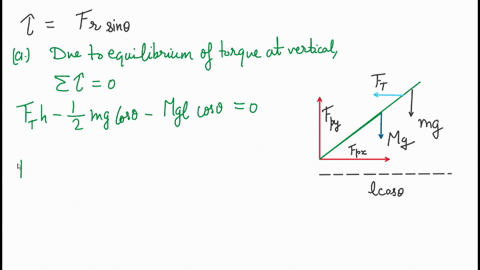 τ = Fr sinθ
(a.) Due to equilibrium of torque at vertical,
Στ = 0
F_T h - 1/2 mg cosθ - Mgl cosθ = 0
F_T
F_py
mg
Mg
F_px
lcosθ